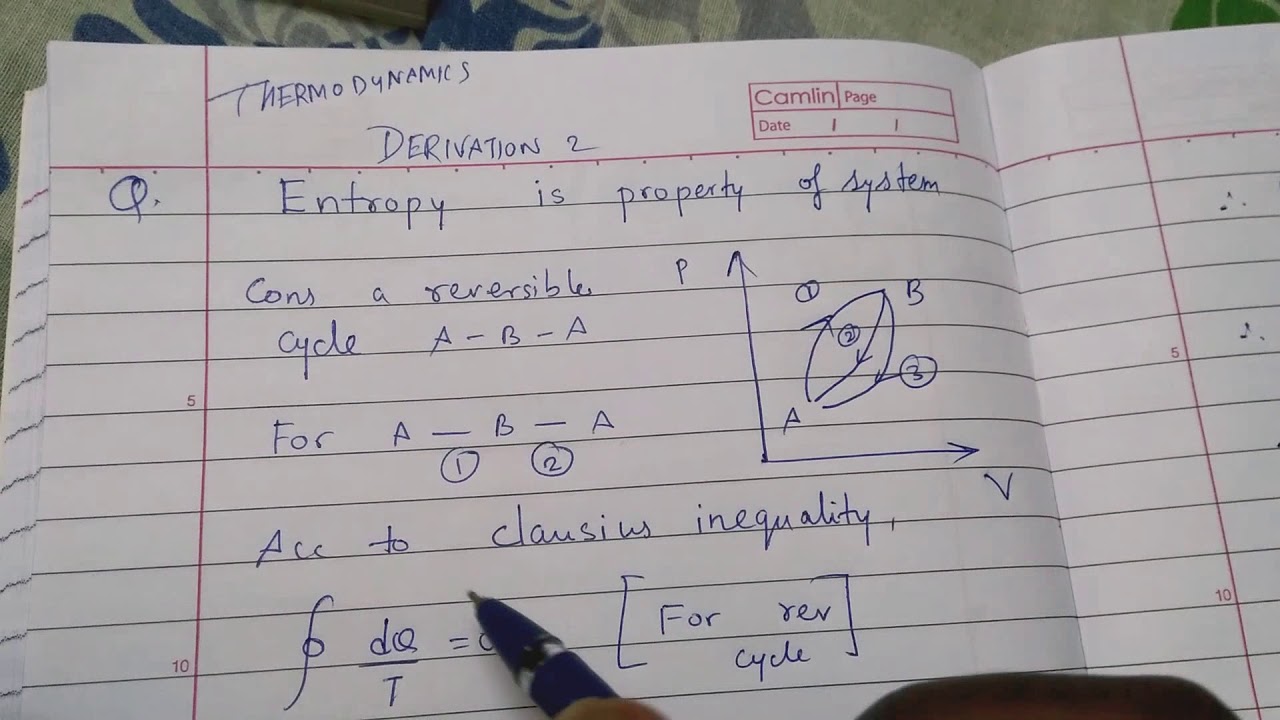 THERMODYNAMICS
Camlin Page
Date / /
DERIVATION 2
Q. Entropy is property of system
Cons a reversible
cycle A - B - A
P
① B
②
③
A
V
For A — B — A
① ②
Acc to clausius inequality,
∮ dQ/T = [For rev cycle]
5
10
5
10